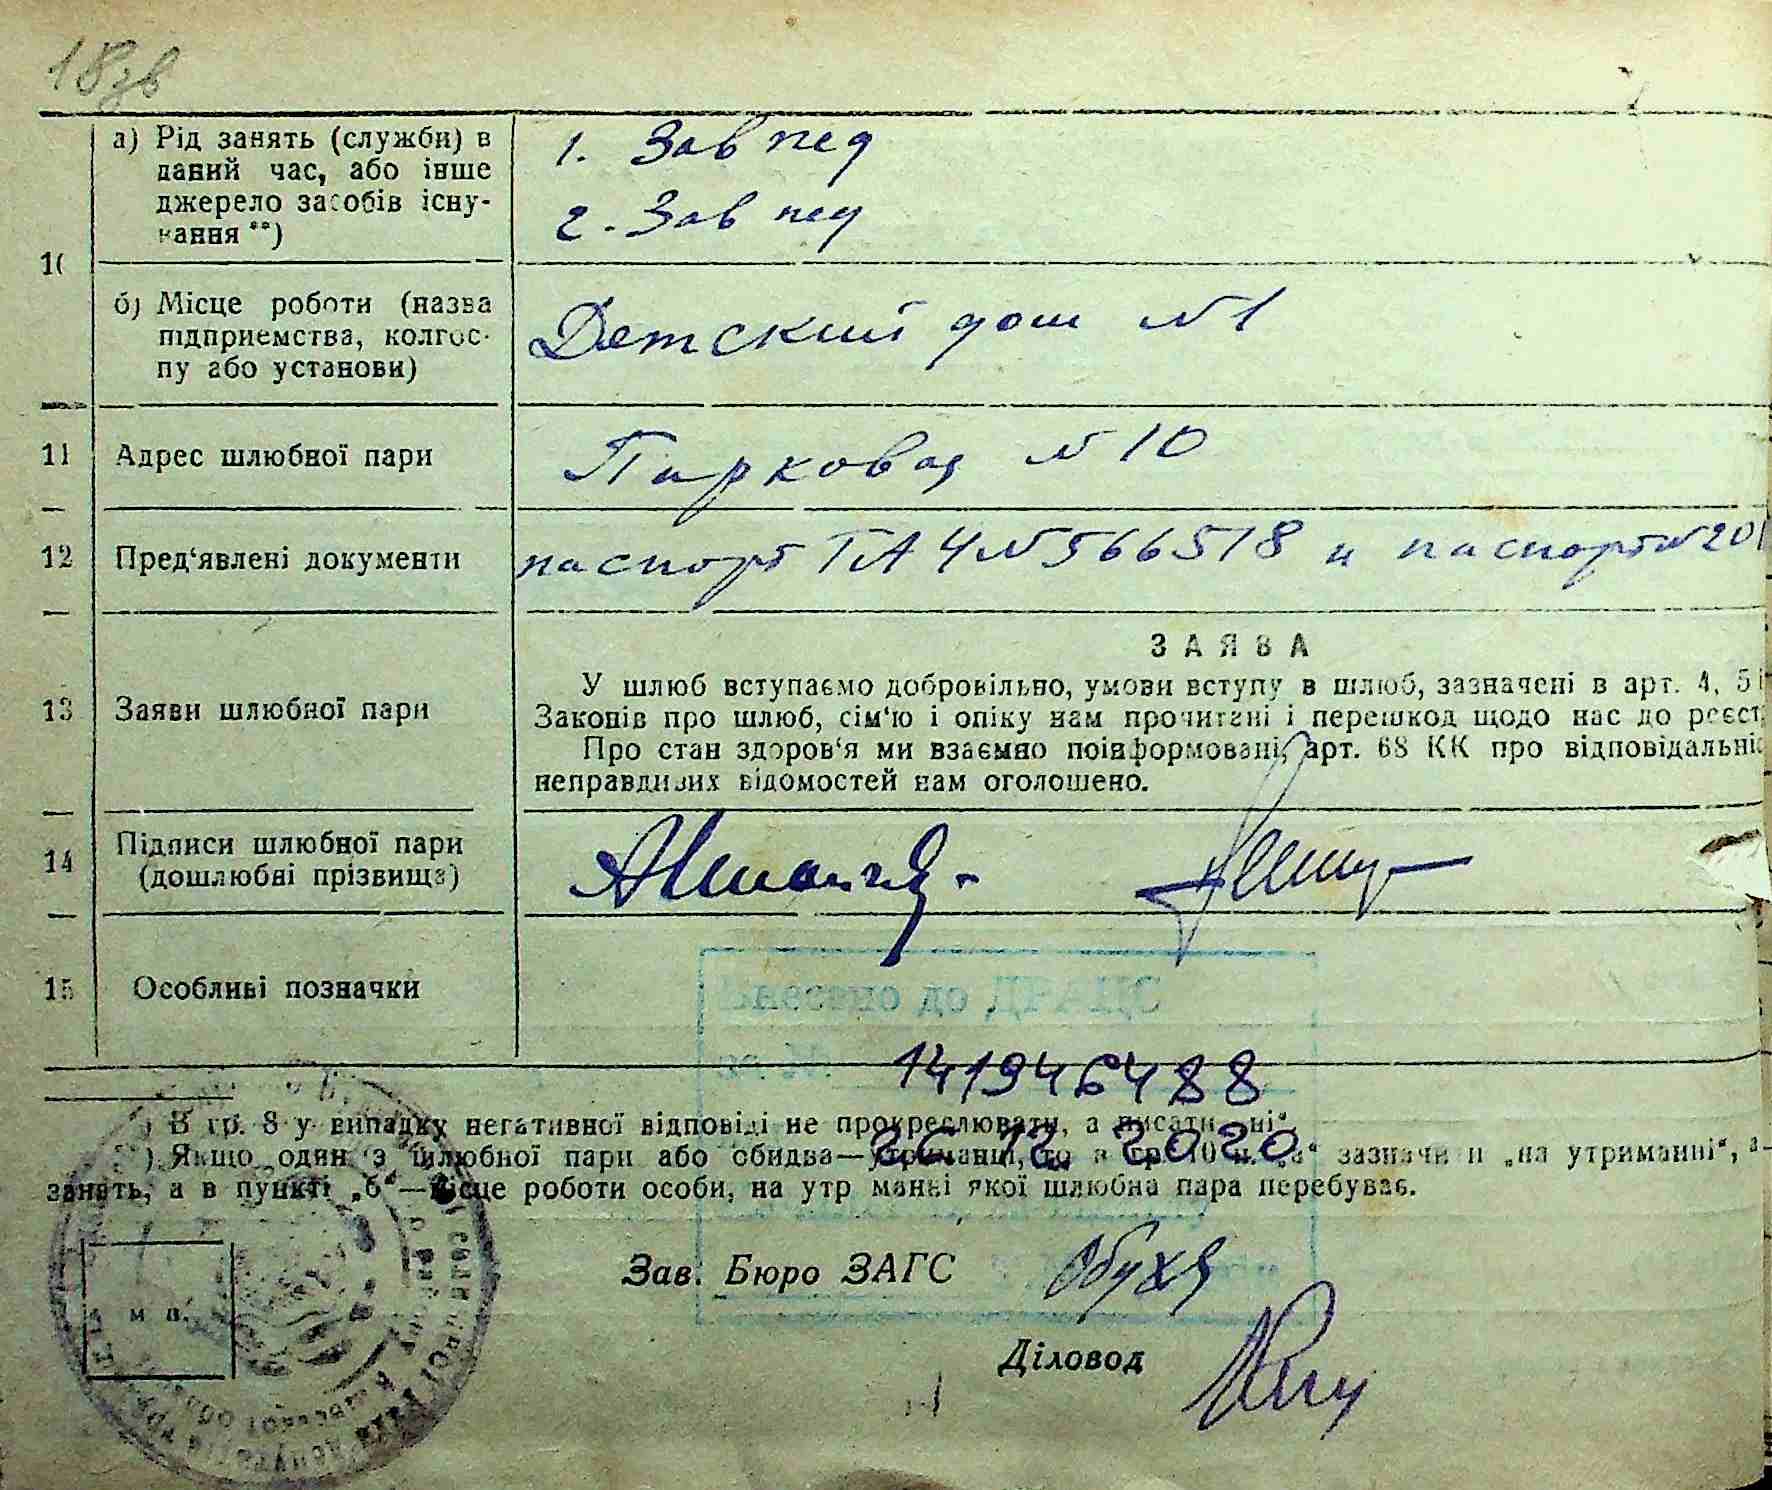 18зв
10
а) Рід занять (служби) в
даний час, або інше
джерело засобів існу-
вання **)
1. Зав пед
2. Зав пед
б) Місце роботи (назва
підприємства, колгос-
пу або установи)
Детский дом №1
11 Адрес шлюбної пари
Парковая №10
12 Пред'явлені документи
паспорт №566518 и паспорт №201
13 Заяви шлюбної пари
ЗАЯВА
У шлюб вступаємо добровільно, умови вступу в шлюб, зазначені в арт. 4, 5 і
Законів про шлюб, сім'ю і опіку нам прочитані і перешкод щодо нас до реєст
Про стан здоров'я ми взаємно поінформовані, арт. 68 КК про відповідальніс
неправдивих відомостей нам оголошено.
14 Підписи шлюбної пари
(дошлюбні прізвища)
15 Особливі позначки
ЗПАЧД од опезена
141946488
26 12 2020
) В гр. 8 у випадку негативної відповіді не прокреслювати, а писати „ні“.
) Якщо один з шлюбної пари або обидва—утриманці, то в гр. 10 п. „а“ зазначи и „на утриманні“, а
занять, а в пункті „б“—місце роботи особи, на утр манні якої шлюбна пара перебуває.
М П.
Зав. Бюро ЗАГС
Діловод